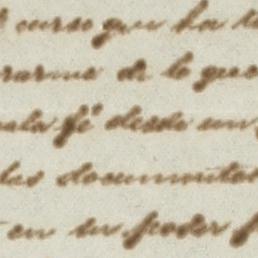 curso que ha
de lo que
mala fé desde un
los documentos
en su poder